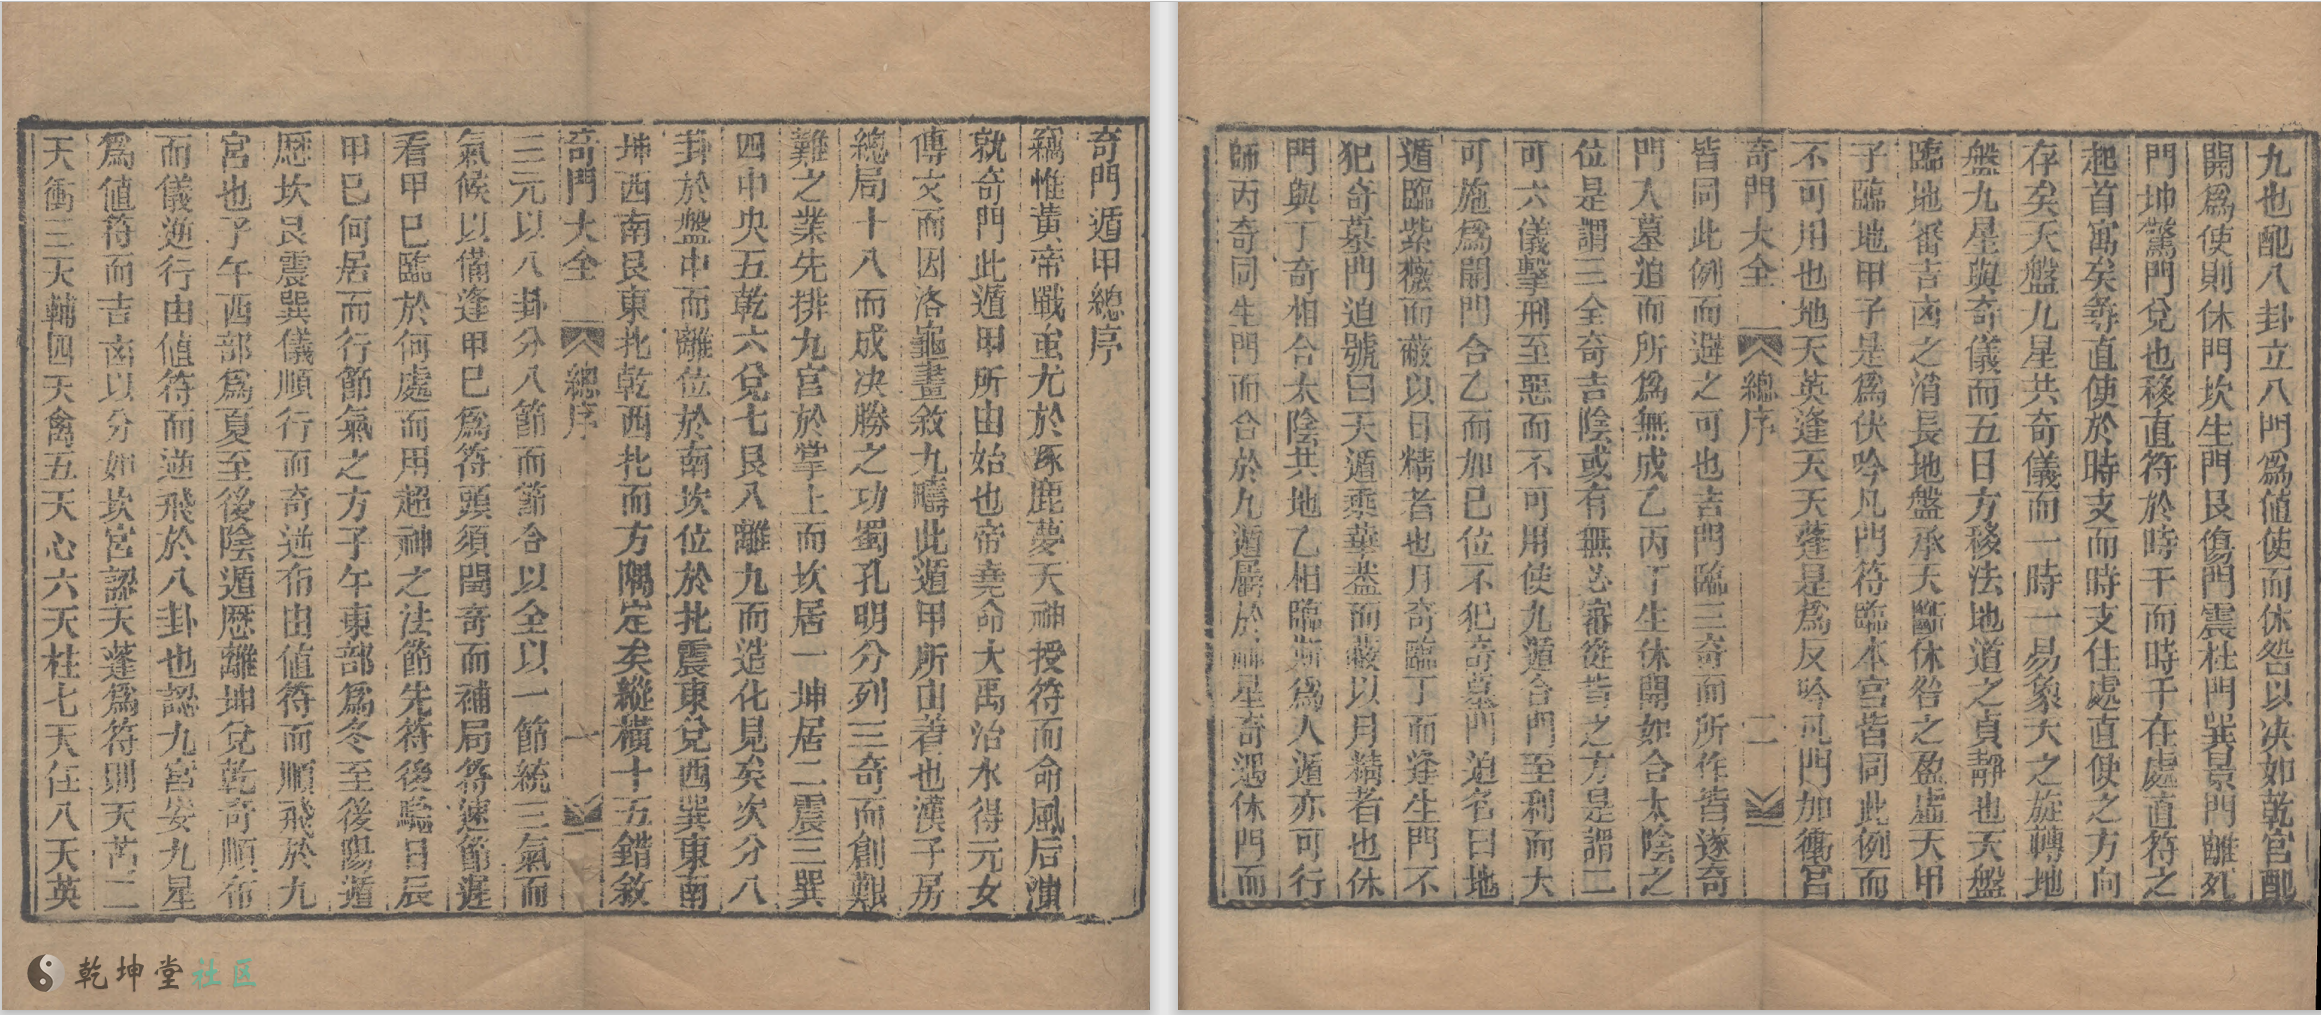 奇門遁甲總序
竊惟黃帝戰蚩尤於涿鹿夢天神授符而命風后演
就奇門此遁甲所由始也帝堯命大禹治水得元女
傳文而因洛龜畫敘九疇此遁甲所由著也漢子房
總局十八而成决勝之功蜀孔明分列三奇而創艱
難之業先排九宮於掌上而坎居一坤居二震三巽
四中央五乾六兌七艮八離九而造化見矣次分八
卦於盤中而離位於南坎位於北震東兌西巽東南
坤西南艮東北乾西北而方隅定矣縱橫十五錯敘
奇門大全 總序 一
三元以八卦分八節而節合以全以一節統三氣而
氣候以備逢甲巳爲符頭須閏奇而補局符速節遲
看甲巳臨於何處而用超神之法節先符後騐日辰
甲巳何居而行節氣之方子午東部爲冬至後陽遁
歷坎艮震巽儀順行而奇逆布由值符而順飛於九
宮也子午西部爲夏至後陰遁歷離坤兌乾奇順布
而儀逆行由值符而逆飛於八卦也認九宮安九星
爲值符而吉凶以分如坎宮認天蓬爲符則天芮二
天衝三天輔四天禽五天心六天柱七天任八天英
九也配八卦立八門爲値使而休咎以决如乾宮配
開爲使則休門坎生門艮傷門震杜門巽景門離死
門坤驚門兌也移直符於時干而時干在處直符之
起首寓矣尋直使於時支而時支住處直使之方向
存矣天盤九星共奇儀而一時一易象天之旋轉地
盤九星與奇儀而五日方移法地道之貞靜也天盤
臨地審吉凶之消長地盤承天斷休咎之盈虛天甲
子臨地甲子是爲伏吟凡門符臨本宮皆同此例而
不可用也地天英逢天天蓬是爲反吟凡門加衝宮
奇門大全 總序 二
皆同此例而避之可也吉門臨三奇而所作皆遂奇
門入墓迫而所爲無成乙丙丁生休開如合太陰之
位是謂三全奇吉陰或有無必審從皆之方是謂二
可六儀擊刑至惡而不可用使九遁合門至利而大
可施爲開門合乙而加巳位不犯奇墓門迫名曰地
遁臨紫薇而蔽以日精者也月奇臨丁而逢生門不
犯奇墓門迫號曰天遁乘華葢而蔽以月精者也休
門與丁奇相合太陰共地乙相臨斯爲人遁亦可行
師丙奇同生門而合於九遁屬於神星奇遇休門而